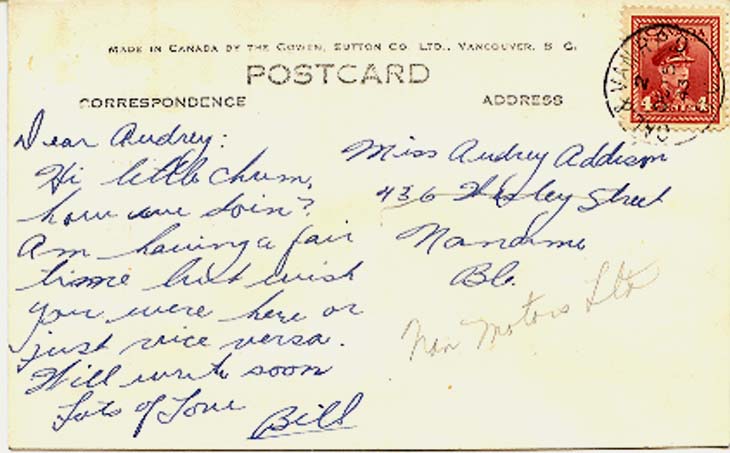 MADE IN CANADA BY THE GOWEN, SUTTON CO. LTD., VANCOUVER, B. C.
POSTCARD
CORRESPONDENCE
ADDRESS
Dear Audrey:
Hi little chum,
how are doin?
Am having a fair
time but wish
you were here or
just vice versa.
Will write soon
Lots of Love
Bill
Miss Audrey Addison
436 Street
Nanaimo
BC.
Nan Motors Ltd
CANADA
4 4